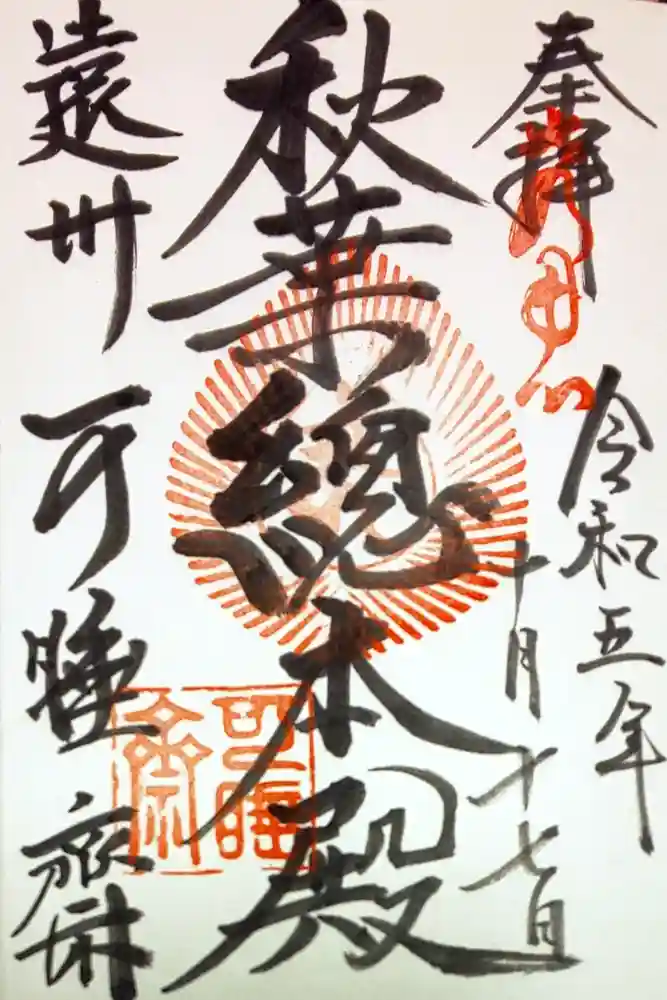 奉拝
令和五年
十月十七日
秋葉總本殿
遠州 可睡齋
可睡
齋